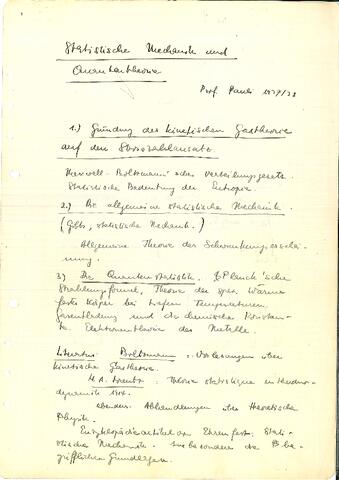 Statistische Mechanik und
Quantentheorie
Prof. Pauli 1937/38
1.) Gründung der kinetischen Gastheorie
auf den Stosszahlansatz
Maxwell-Boltzmann'sche Verteilungsgesetz.
Statistische Bedeutung der Entropie.
2.) Die allgemeine statistische Mechanik
(Gibbs, statistische Mechanik.)
Allgemeine Theorie der Schwankungserschei-
nung.
3) Die Quantenstatistik. Planck'sche
Strahlungsformel, Theorie der spez. Wärme
fester Körper bei tiefen Temperaturen.
Gasentartung und die chemischen Konstan-
te. Elektronentheorie der Metalle.
Literatur: Boltzmann: Vorlesungen über
kinetische Gastheorie.
H. A. Lorentz: Théorie statistique en thermo-
dynamik
ebenso: Abhandlungen über theoretische
Physik.
Enzyklopädieartikel von Ehrenfest: Stati-
stische Mechanik. Insbesondere die be-
grifflichen Grundlagen.